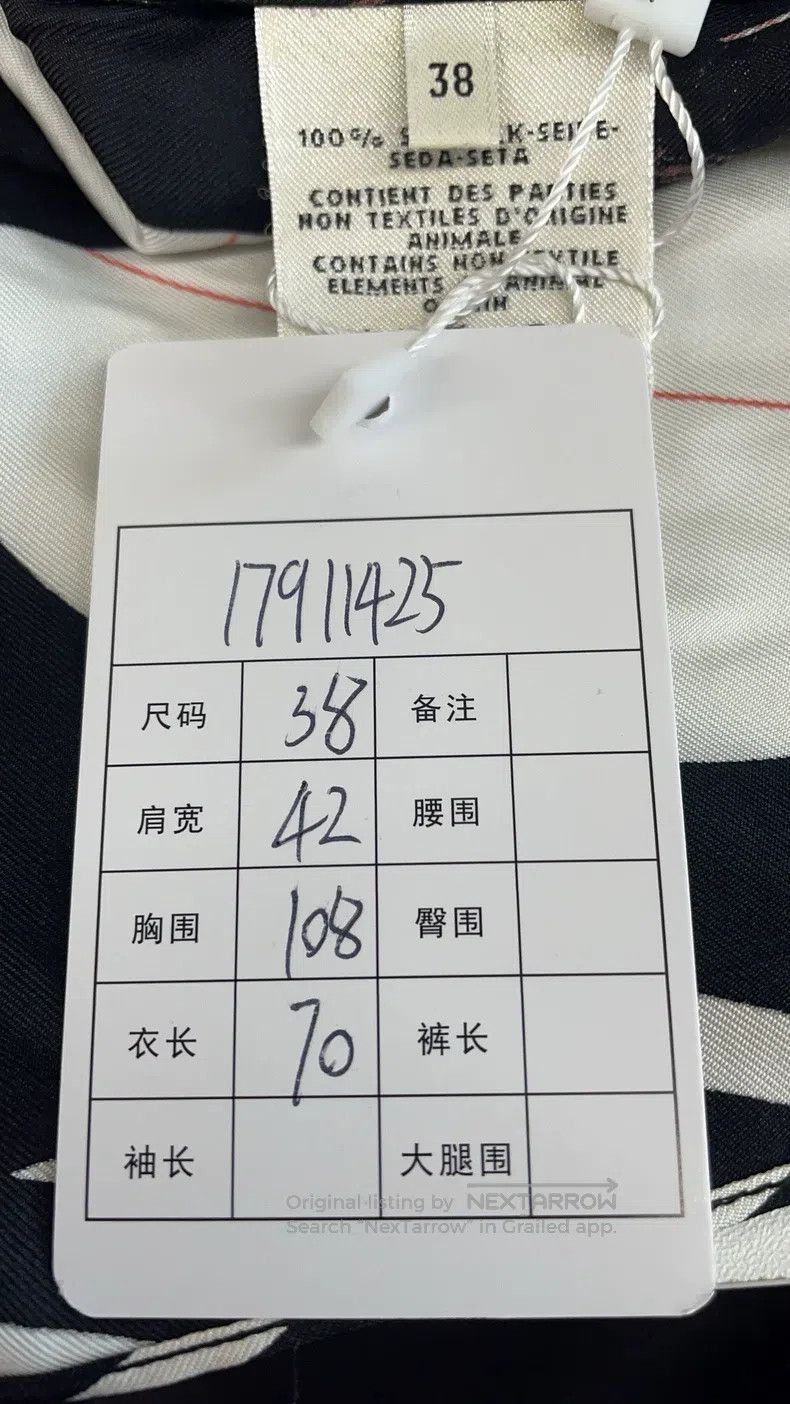 38
100% S K-SEIDE-
SEDA-SETA
CONTIENT DES PARTIES
NON TEXTILES D'ORIGINE
ANIMALE
CONTAINS NON TEXTILE
ELEMENTS ANIMAL
17911425
尺码 38 备注
肩宽 42 腰围
胸围 108 臀围
衣长 70 裤长
袖长 大腿围
Original listing by NEXTARROW
Search "NexTarrow" in Grailed app.